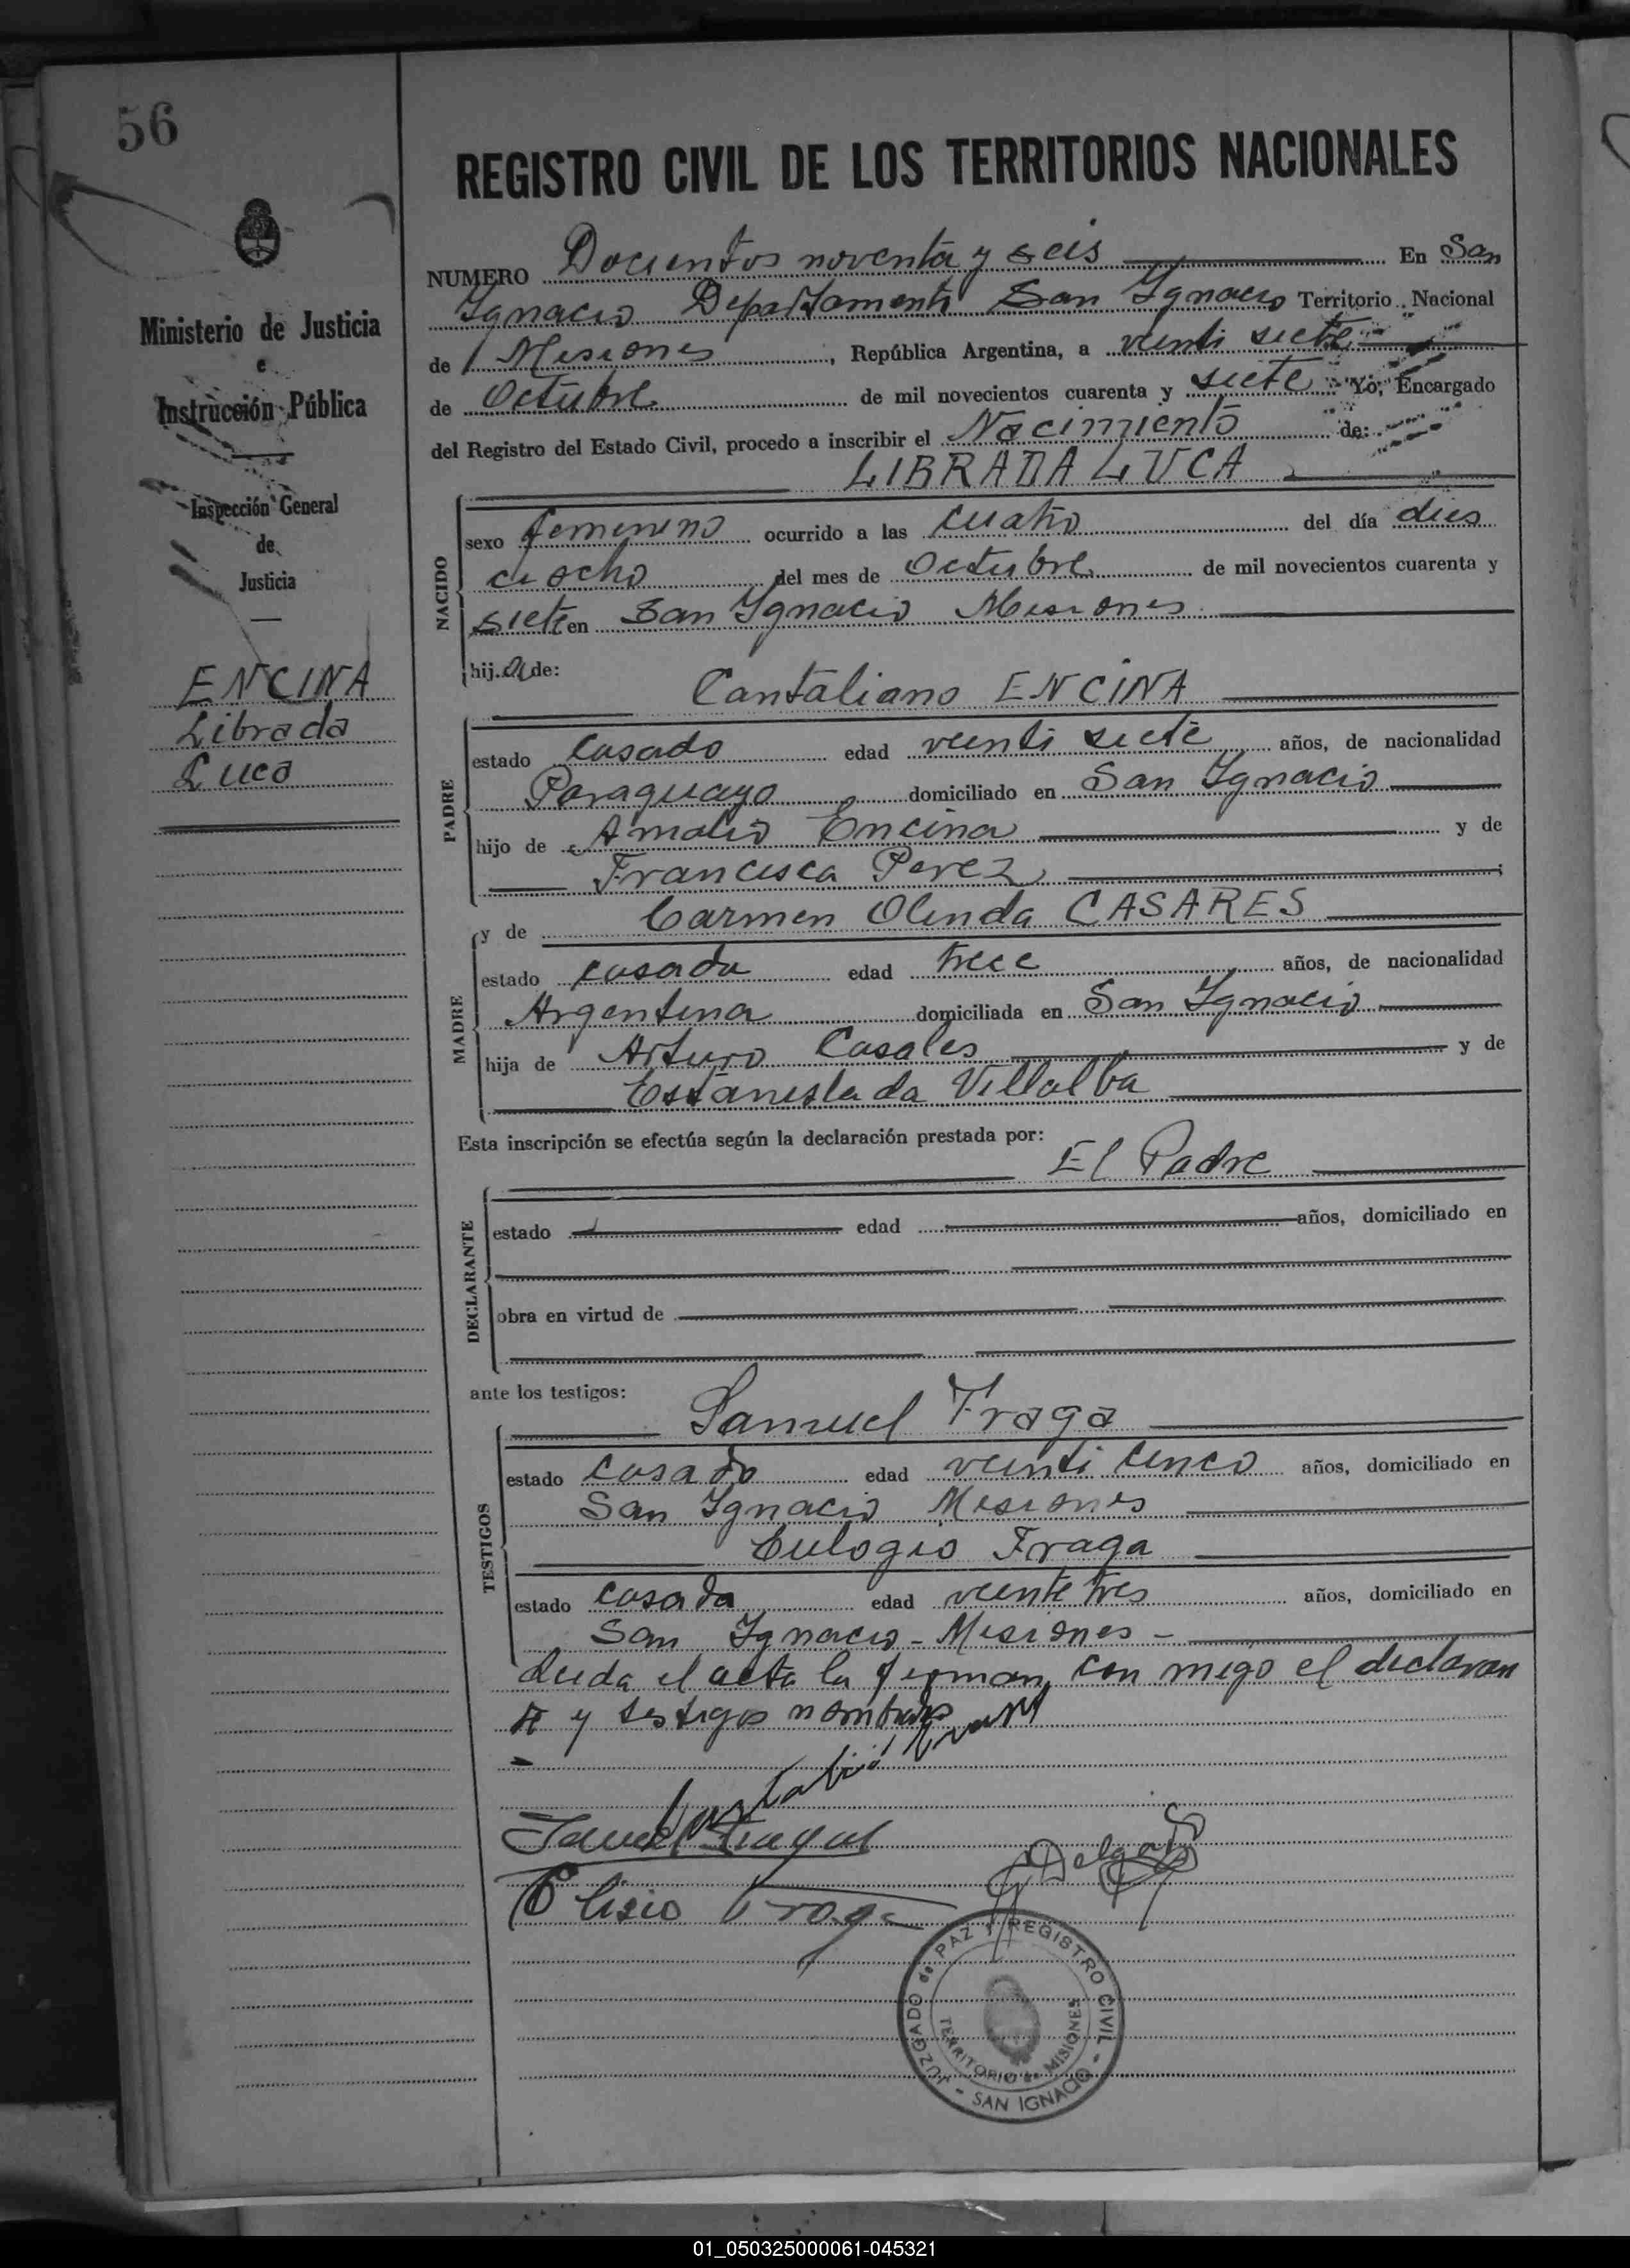 56
REGISTRO CIVIL DE LOS TERRITORIOS NACIONALES
Ministerio de Justicia
e
Instrucción Pública
Inspección General
de
Justicia
ENCINA
Librada
Luca
NUMERO Docientos noventa y seis En San
Ignacio Departamento San Ignacio Territorio Nacional
de Misiones, República Argentina, a veinti siete
de Octubre de mil novecientos cuarenta y siete Yo, Encargado
del Registro del Estado Civil, procedo a inscribir el Nacimiento de:
LIBRADA LUCA
NACIDO
sexo femenino ocurrido a las cuatro del día dies
ci ocho del mes de Octubre de mil novecientos cuarenta y
siete en San Ignacio Misiones
hija de:
Cantaliano ENCINA
PADRE
estado casado edad veinti siete años, de nacionalidad
Paraguayo domiciliado en San Ignacio
hijo de Amalio Encina y de
Francisca Perez
MADRE
y de Carmen Olinda CASARES
estado casada edad trece años, de nacionalidad
Argentina domiciliada en San Ignacio
hija de Arturo Casales y de
Estanislada Villalba
Esta inscripción se efectúa según la declaración prestada por:
El Padre
DECLARANTE
estado edad años, domiciliado en
obra en virtud de
ante los testigos:
TESTIGOS
Samuel Fraga
estado casado edad veinti cinco años, domiciliado en
San Ignacio Misiones
Eulogio Fraga
estado casada edad veinte tres años, domiciliado en
San Ignacio - Misiones -
Leida el acta la firman con migo el declaran
te y testigos nombrados
Samuel Fraga
Elisio Fraga
Delgado
JUZGADO de PAZ Y REGISTRO CIVIL
TERRITORIO de MISIONES
- SAN IGNACIO -
01_050325000061-045321